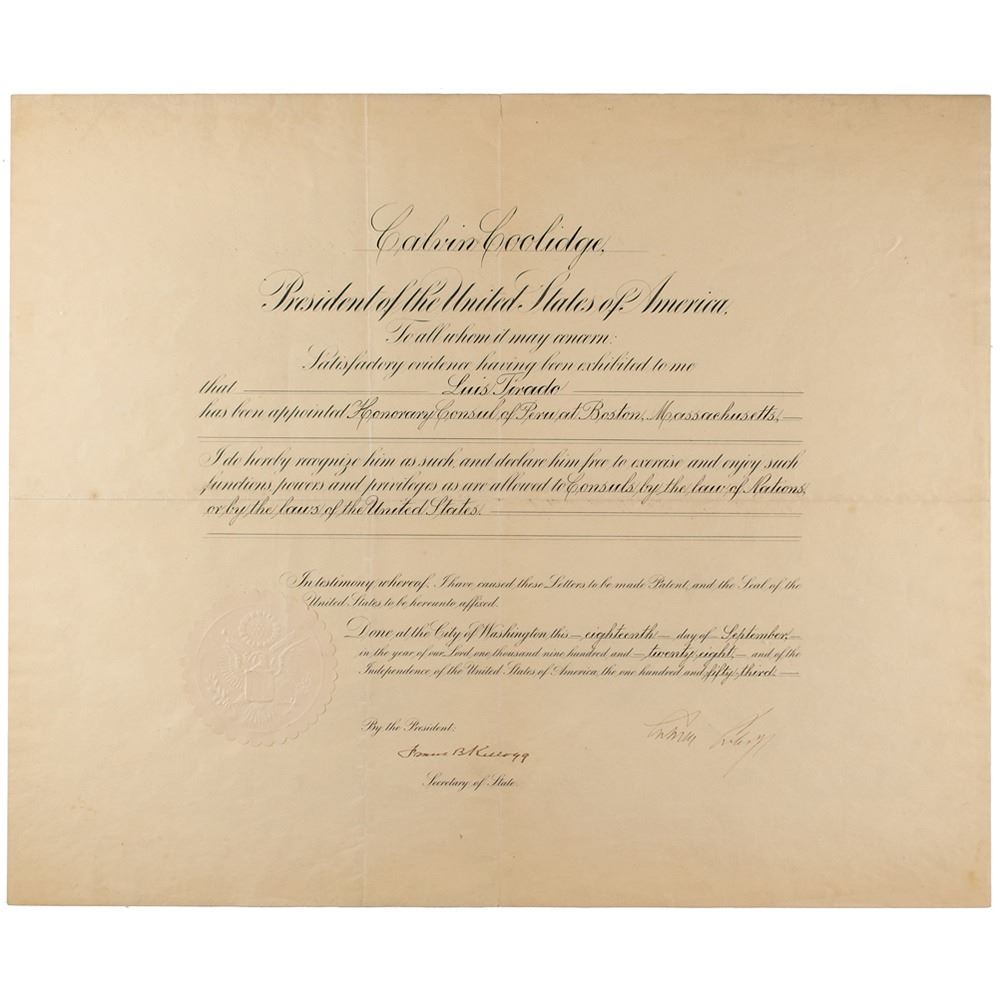 Calvin Coolidge,
President of the United States of America,
To all whom it may concern:
Satisfactory evidence having been exhibited to me
that Luis Tirado
has been appointed Honorary Consul of Peru, at Boston, Massachusetts,
I do hereby recognize him as such, and declare him free to exercise and enjoy such
functions, powers and privileges as are allowed to Consuls by the law of Nations,
or by the laws of the United States.
In testimony whereof, I have caused these Letters to be made Patent, and the Seal of the
United States to be hereunto affixed.
Done at the City of Washington this eighteenth day of September,
in the year of our Lord one thousand nine hundred and twenty eight, and of the
Independence of the United States of America, the one hundred and fifty third.
By the President:
Calvin Coolidge
Frank B Kellogg
Secretary of State.